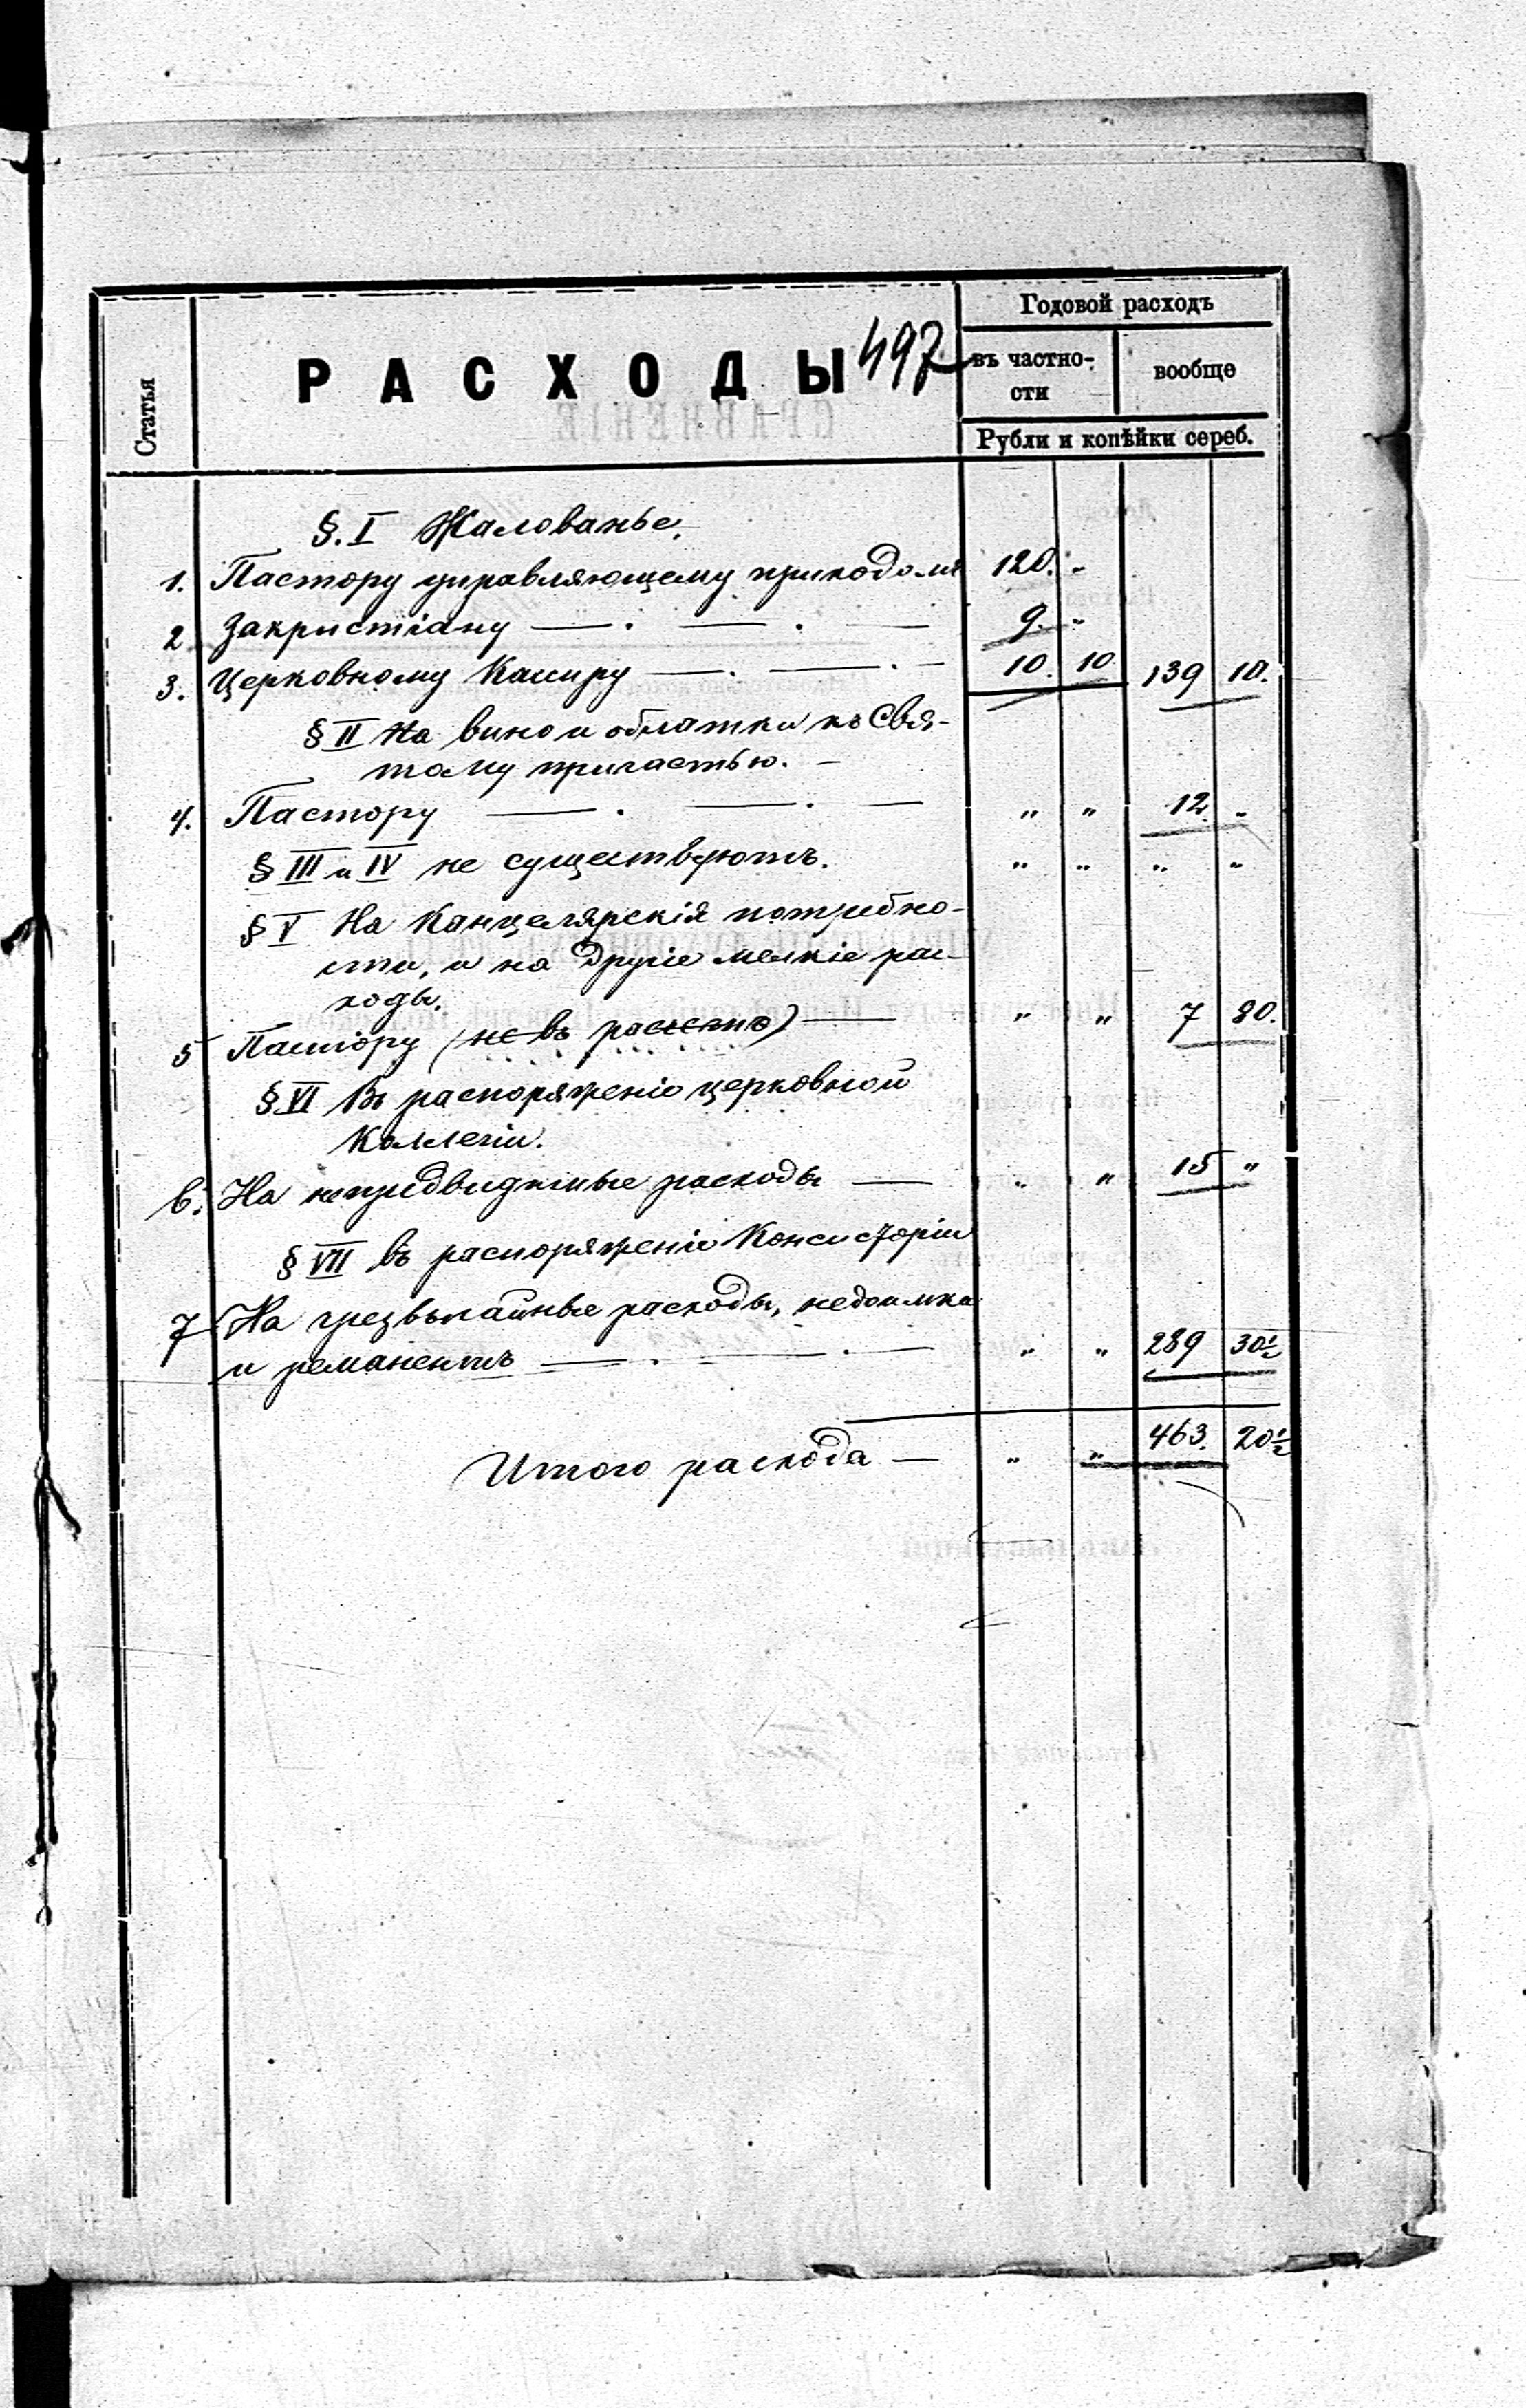 Статья
РАСХОДЫ 497
Годовой расходъ
въ частно-
сти
вообще
Рубли и копѣйки сереб.
§. I Жалованье.
1. Пастору управляющему приходомъ 120. „
2 Закристіану — . — . — 9. „
3. Церковному Кассиру — . — . — 10. 10 139 10.
§ II На вино и облатки къ Свя-
тому причастью. —
4. Пастору — . — . — „ „ 12. „
§ III и IV не существуютъ. „ „ „ „
§ V На Канцелярскія потребно-
сти, и на другіе мелкіе рас-
ходы.
5 Пастору (не въ расчетъ) — „ „ 7 80.
§ VI Въ распоряженіе церковной
Коллегіи.
6. На непредвидимые расходы — „ „ 15 „
§ VII въ распоряженіе Консисторіи
7 На чрезвычайные расходы, недоимка
и реманентъ — . — . — „ „ 289 30½
Итого расхода — „ „ 463. 20½